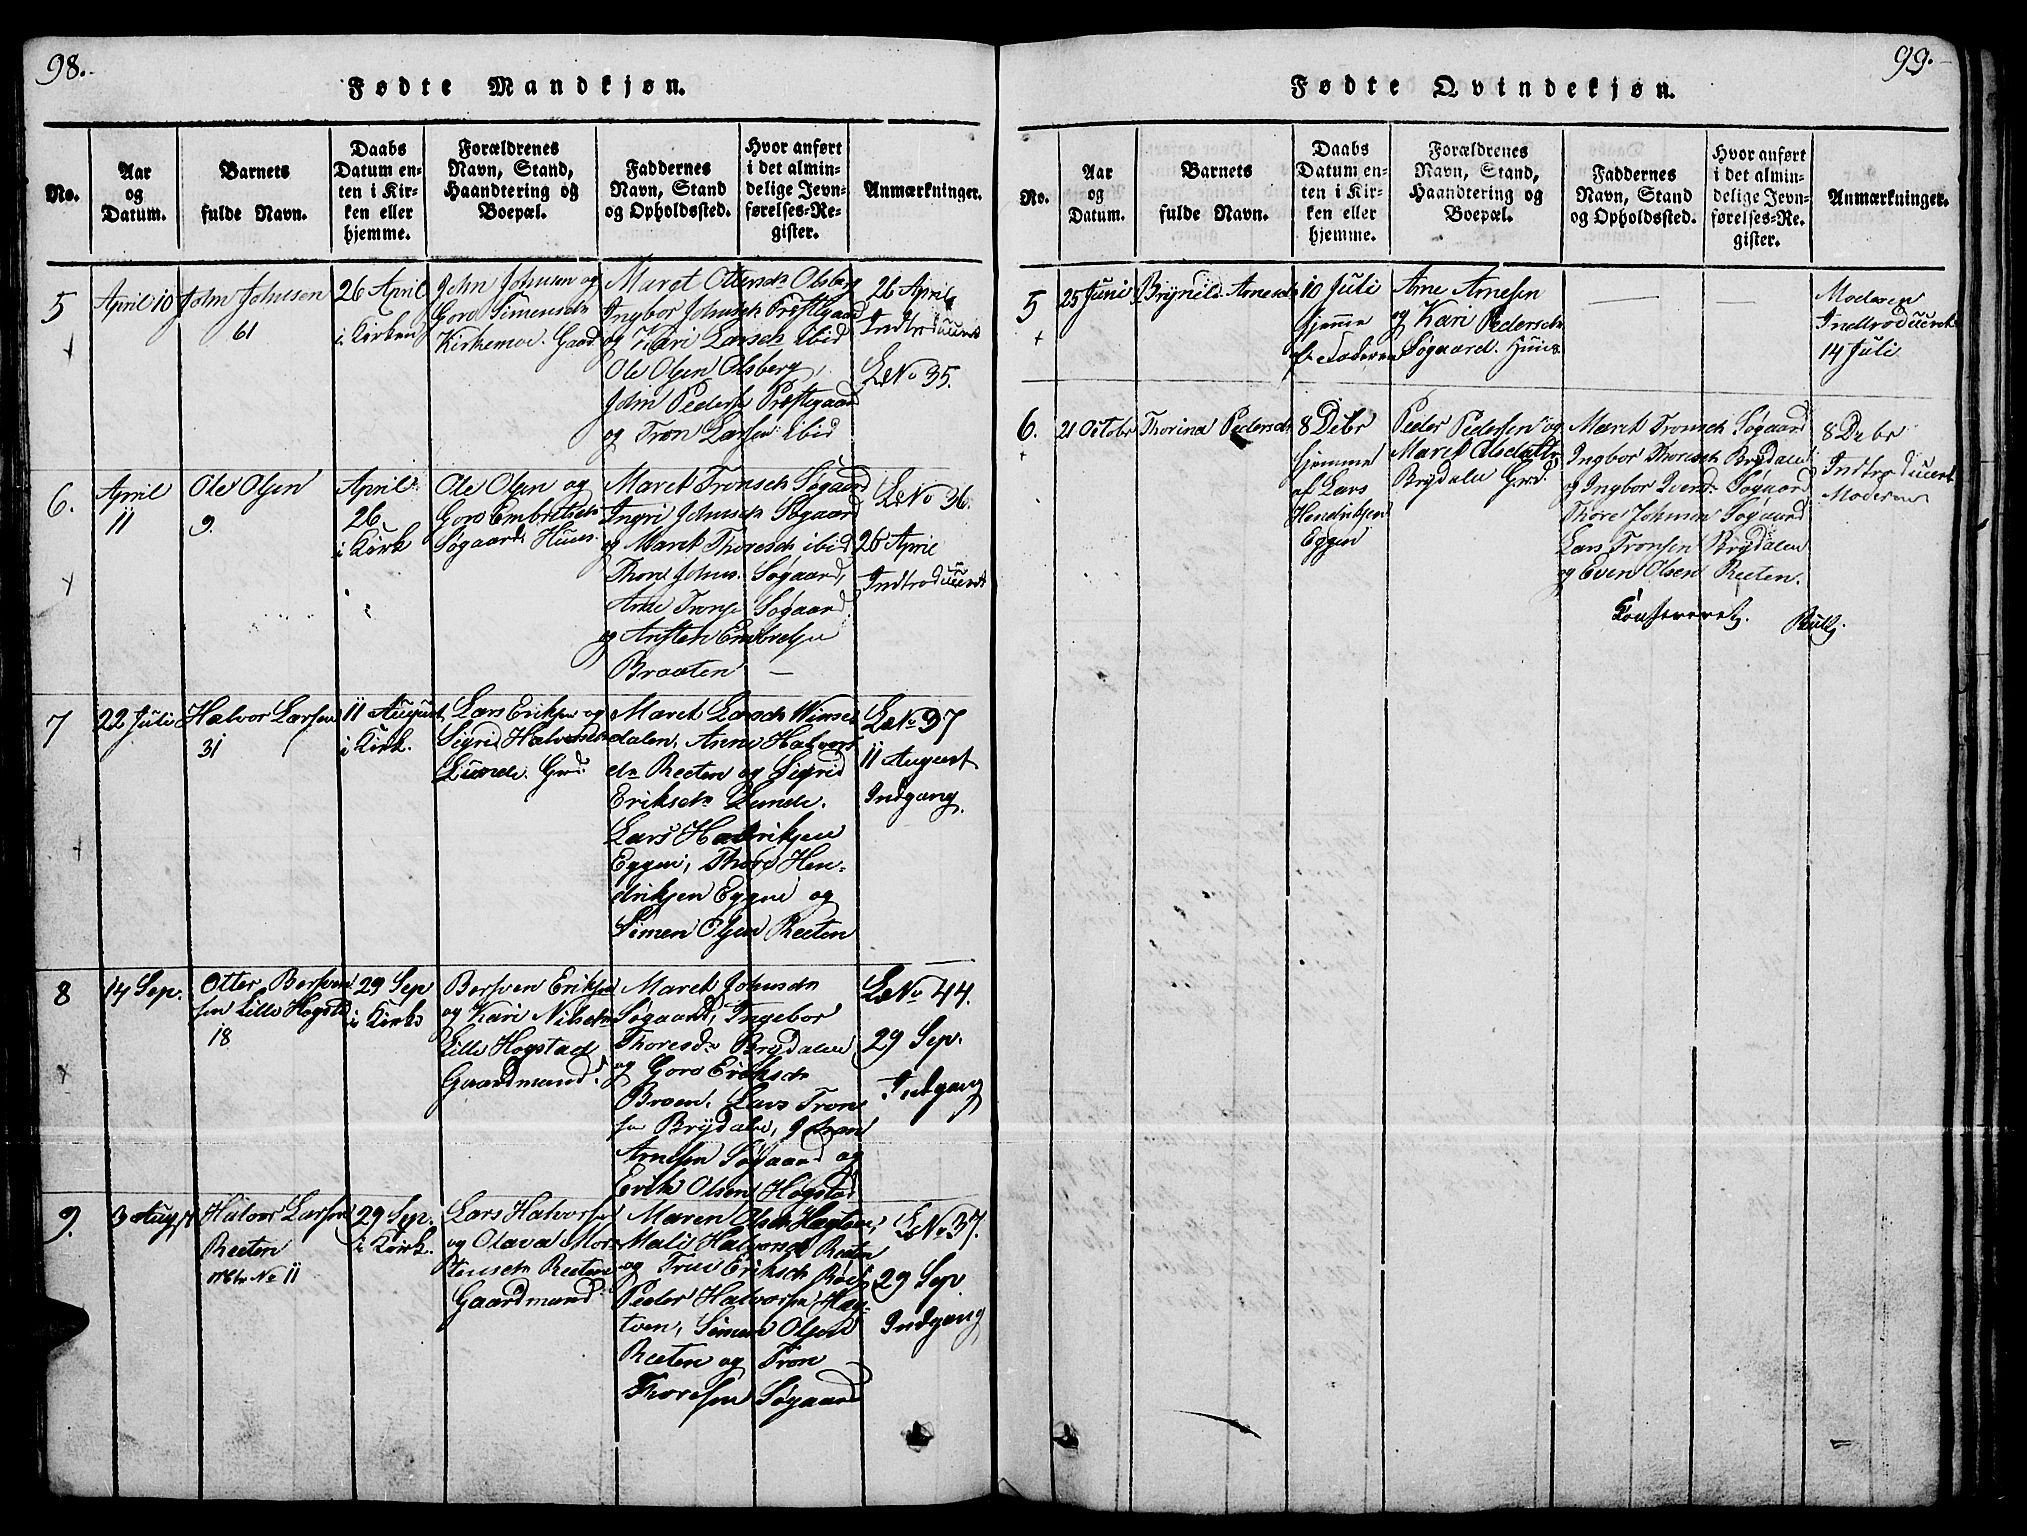 98.
Fødte Mandkjøn.
No.
Aar
og
Datum.
Barnets
fulde Navn.
Daabs
Datum en-
ten i Kir-
ken eller
hjemme.
Forældrenes
Navn, Stand,
Haandtering og
Boepæl.
Faddernes
Navn, Stand
og Opholdssted.
Hvor anført
i det almin-
delige Jevn-
førelses-Re-
gister.
Anmærkninger.
5
April 10
John Johnsen
61
26 April
i Kirken
John Johnsen og
Goro Simensdr
Kirkemoe. Gaad
Maret Olsdr Olsberg
Ingbor Johnsdr Præstegaard
og Kari Larsdr ibid
Ole Olsen Olsberg,
John Peders Præstegaard
og Tron Larsen ibid
26 April
Indtroduceret
L No 35.
6.
April
11
Ole Olsen
9.
April
26
i Kirk
Ole Olsen og
Goro Embretsdr
Søgaard Huus.
Maret Tronsdr Søgaard
Ingri Johnsdr Søgaard
og Maret Thoresdr ibid
Thore Johns. Søgaard,
Arne Tronse Søgaard
og Ansten Embretsen
Braaten —
L No 36.
26 April
Indtroduceret
7
22 Juli
Halvor Larsen
31
11 August
i Kirk.
Lars Eriksen og
Sigrid Halvorsdr
Lunde. Grd.
Maret Larsdr
dalen, Anne Halvors
dr Reeten og Sigrid
Eriksdr Lunde.
Lars Henriksen
Eggen, Thore Hen-
driksen Eggne og
Simen Olsen Reeten
L No 37
11 August
Indgang.
8
14 Sep.
Otter Bersven
sen Lille Hogstd
18
29 Sep
i Kirke
Bersven Eriksen
og Kari Nilsdr
Lille Hogstad
Gaardmand.
Maret Johnsdr
Søgaard, Ingebor
Thoresdr Brydalen
og Goro Eriksdr
Broen. Lars Tron
sen Brydalen,
Arnesen Søgaard og
Erik Olsen Hogstad
L No 44.
29 Sep.
Indgang
9.
3 Augst
Halvor Larsen
Reeten
No 11
29 Sep.
i Kirk.
Lars Halvorsen
og Olava Mor-
tensdr Reeten
Gaardmand
Maren Olsdr
Mali Halvorsdr Reeten
og Trui Eriksdr
Peder Halvorsen Hag-
tven, Simen Olsen
Reeten og Tron
Thoresen Søgaard
L No 37.
29 Sep
Indgang
99.
Fødte Qvindekjøn.
No.
Aar
og
Datum.
Barnets
fulde Navn.
Daabs
Datum en-
ten i Kir-
ken eller
hjemme.
Forældrenes
Navn, Stand,
Haandtering og
Boepæl.
Faddernes
Navn, Stand
og Opholdssted.
Hvor anført
i det almin-
delige Jevn-
førelses-Re-
gister.
Anmærkninger.
5
25 Juni
Brynild Arnesdr
10 Juli
hjemme
af Faderen
Arne Arnesen
og Kari Pedersdr
Søgaard. Huus
Moderen
Indtroduceret
14 Juli
6.
21 Octobr
Thorina Pedersdr
8 Debr
hjemme
af Lars
Hendriksen
Eggen
Peder Pedersen og
Maret Olsdatter
Brydalen Grd.
Maret Tronsdr Søgaard
Ingbor Thoresdr Brydalen
og Ingbor Iversdr Søgaard
Thore Johnsen Søgaard
Lars Tronsen Brydalen
og Even Olsen Reeten.
8 Debr
Indtroduceret
Moderen